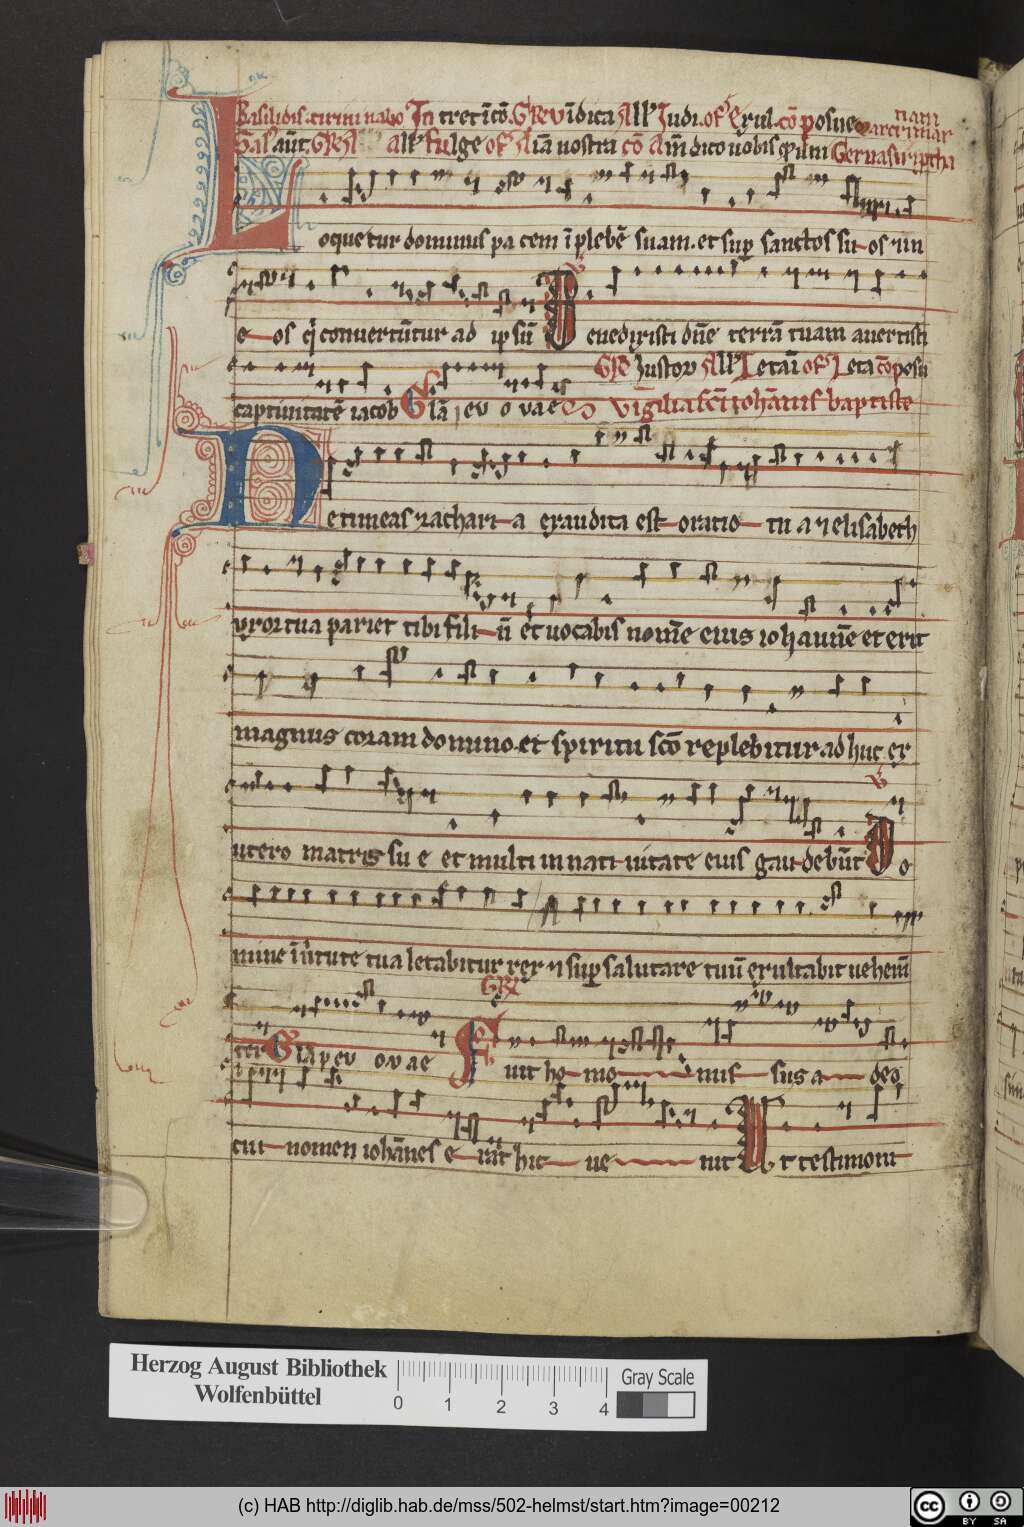 Basilidis. cirini nabo In tret ĩ cõ. GR Vĩdica All' Iudi. of' Exul. cõ posue
Sal' aũt. GR All' fulge of' Aĩa nostra cõ Am̃ dico uobis Geruasii
Loquetur dominus pacem ĩ plebẽ suam. et sup sanctos su-os ⁊ in
e-os q̇ conuertũtur ad ipsũ V Benedixisti dñe terrã tuam auertisti
GR Iustor All' Letaĩ of' Leta cõ posu
captiuitatẽ iacob Glã euouae Vigilia sc̃i iohãnis baptiste
Ne timeas zachari-a exaudita est oratio- tu a ⁊ elisabeth
uxor tua pariet tibi fili-ũ et uocabis nom̃e eius iohanñe et erit
magnus coram domino. et spiritu sc̃o replebitur adhuc ex
utero matris su e et multi in nati-uitate eius gau-debũt V Do
mine ĩ uirtute tua letabitur rex ⁊ sup salutare tuũ exultabit uehem̃
ter Glã p euouae GR Fuit ho-mo- mis- sus a- deo
cui- nomen iohãnes e-rat hic- ue- nit V Vt testimoni
Herzog August Bibliothek
Wolfenbüttel
0 1 2 3 4
Gray Scale
(c) HAB http://diglib.hab.de/mss/502-helmst/start.htm?image=00212
cc BY SA